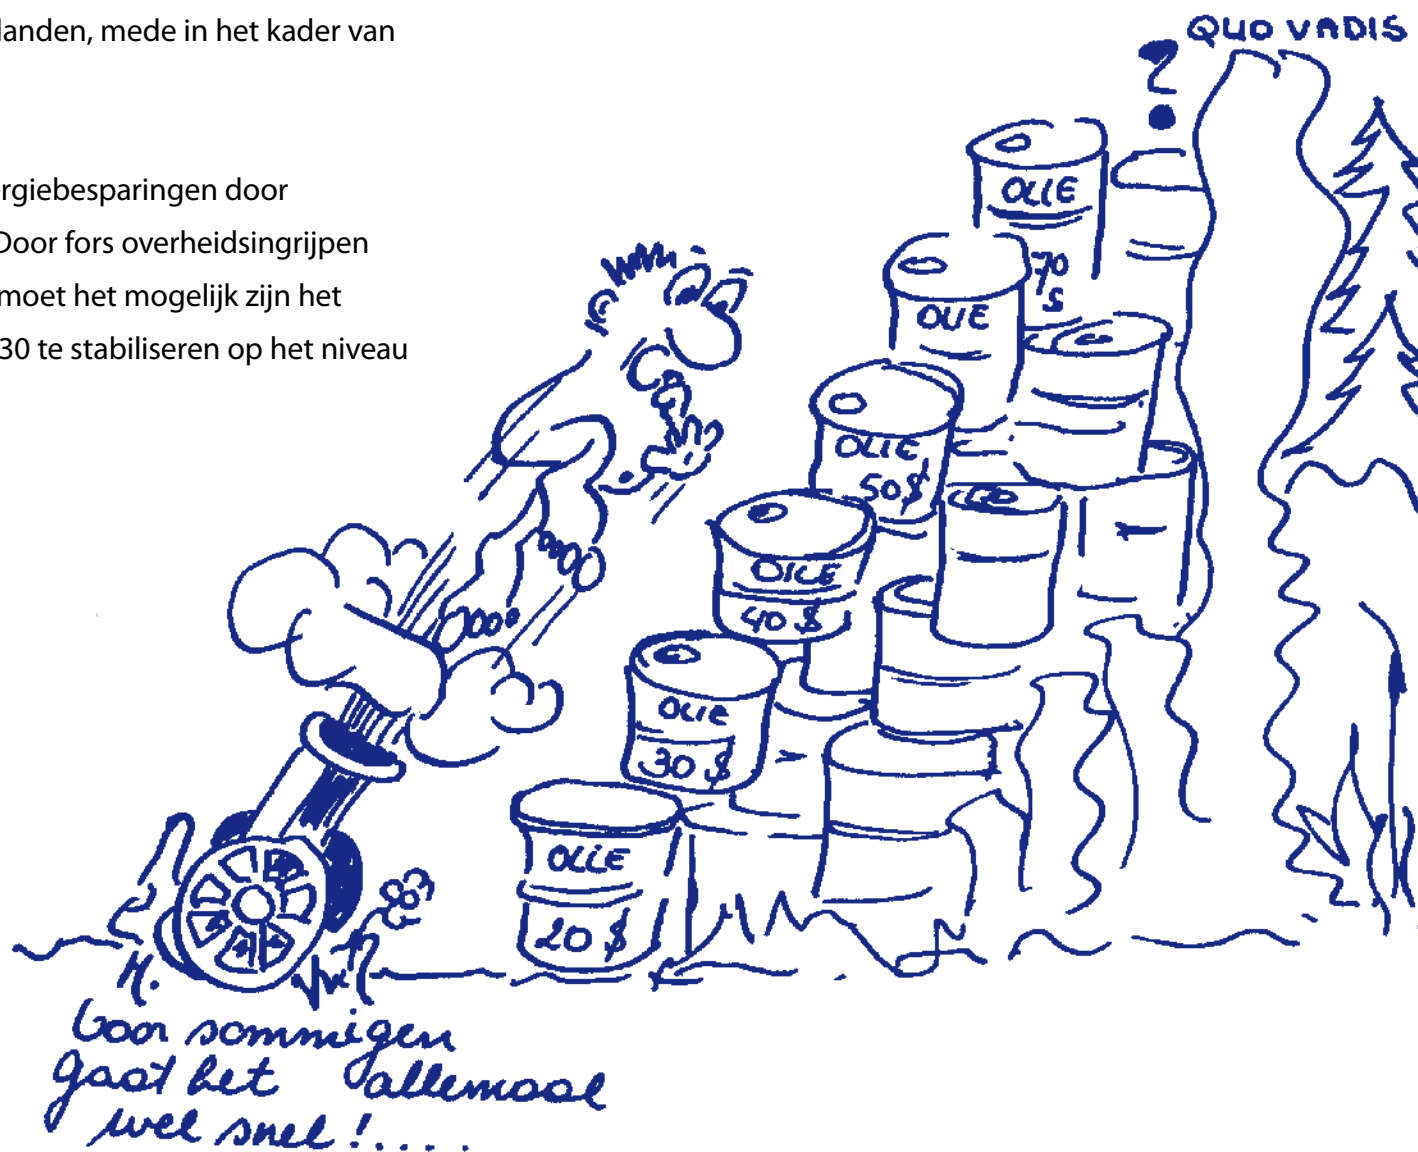 landen, mede in het kader van
rgiebesparingen door
Door fors overheidsingrijpen
moet het mogelijk zijn het
30 te stabiliseren op het niveau
QUO VADIS
?
OLIE
70
$
OLIE
OLIE
50 $
OLIE
40 $
OLIE
30 $
OLIE
20 $
Voor sommigen
gaat het allemaal
wel snel!....